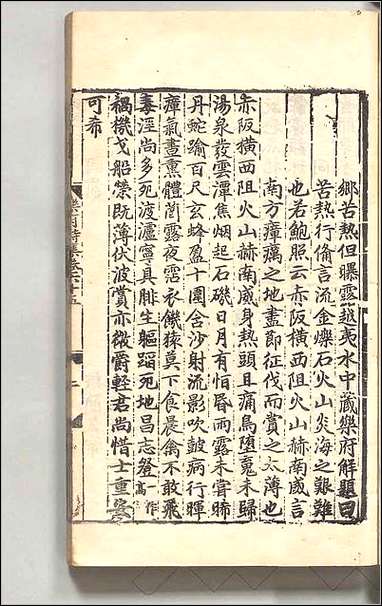 鄉苦熱但曝露越夷水中藏樂府解題曰
苦熱行備言流金爍石火山炎海之艱難
也若鮑照云赤阪橫西阻火山赫南威言
南方瘴癘之地盡節征伐而賞之太薄也
赤阪橫西阻火山赫南威身熱頭且痛鳥墮䰟未歸
湯泉發雲潭焦烟起石磯日月有恒昏雨露未嘗晞
丹蛇踰百尺玄蜂盈十圍含沙射流影吹蠱病行暉
瘴氣晝熏體䓍露夜霑衣饑猿莫下食晨禽不敢飛
毒涇尚多死渡瀘寧具腓生軀蹈死地昌志登高一作
禍機戈船榮既薄伏波賞亦微爵輕君尚惜士重安
可希
樂府詩集卷六十五